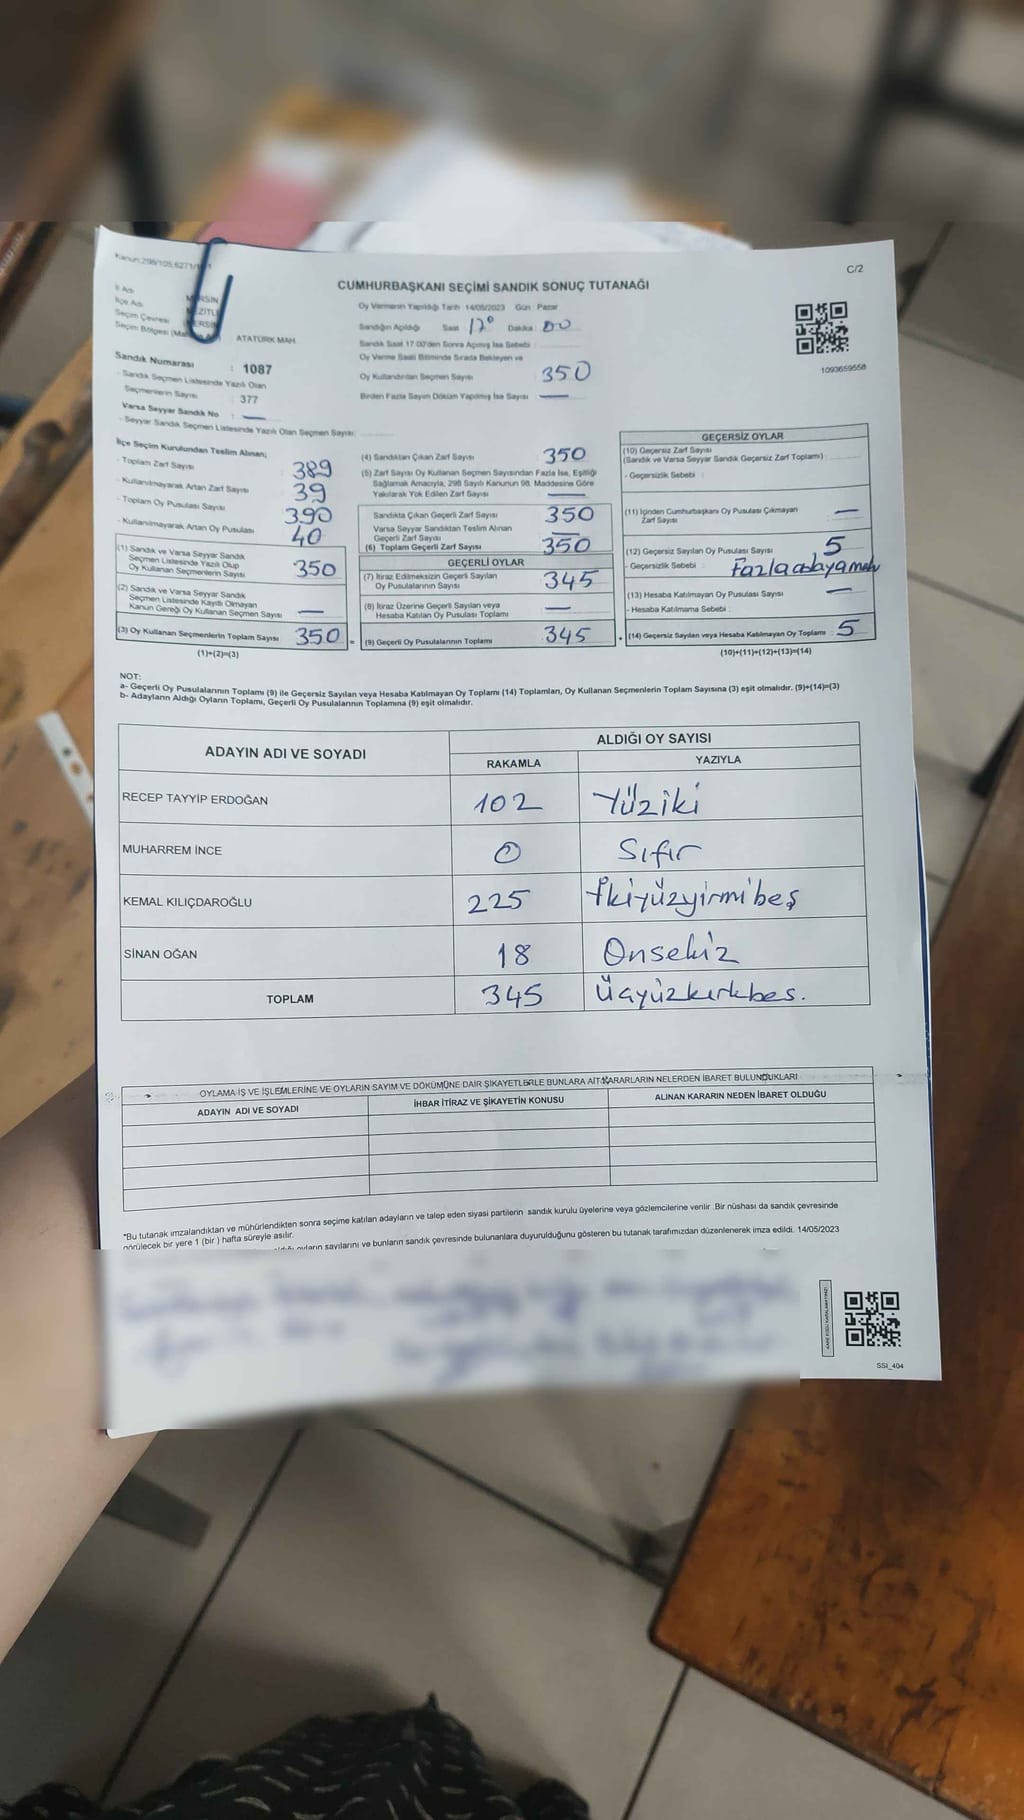 Kanun:298/105,6271/
C/2
CUMHURBAŞKANI SEÇİMİ SANDIK SONUÇ TUTANAĞI
İl Adı
İlçe Adı
Seçim Çevresi
Seçim Bölgesi
ATATÜRK MAH.
Sandık Numarası : 1087
- Sandık Seçmen Listesinde Yazılı Olan
Seçmenlerin Sayısı : 377
Varsa Seyyar Sandık No : —
- Seyyar Sandık Seçmen Listesinde Yazılı Olan Seçmen Sayısı:
Oy Vermenin Yapıldığı Tarih 14/05/2023 Gün : Pazar
Sandığın Açıldığı Saat 17⁰ Dakika : 00
Sandık Saat 17:00'den Sonra Açılmış İse Sebebi :
Oy Verme Saati Bitiminde Sırada Bekleyen ve
Oy Kullandırılan Seçmen Sayısı 350
Birden Fazla Sayım Döküm Yapılmış İse Sayısı : —
1093659558
İlçe Seçim Kurulundan Teslim Alınan;
- Toplam Zarf Sayısı : 389
- Kullanılmayarak Artan Zarf Sayısı : 39
- Toplam Oy Pusulası Sayısı : 390
- Kullanılmayarak Artan Oy Pusulası : 40
(1) Sandık ve Varsa Seyyar Sandık
Seçmen Listesinde Yazılı Olup
Oy Kullanan Seçmenlerin Sayısı : 350
(2) Sandık ve Varsa Seyyar Sandık
Seçmen Listesinde Kayıtlı Olmayan
Kanun Gereği Oy Kullanan Seçmen Sayısı : —
(3) Oy Kullanan Seçmenlerin Toplam Sayısı : 350 =
(1)+(2)=(3)
(4) Sandıktan Çıkan Zarf Sayısı : 350
(5) Zarf Sayısı Oy Kullanan Seçmen Sayısından Fazla İse, Eşitliği
Sağlamak Amacıyla, 298 Sayılı Kanunun 98. Maddesine Göre
Yakılarak Yok Edilen Zarf Sayısı : —
Sandıkta Çıkan Geçerli Zarf Sayısı : 350
Varsa Seyyar Sandıktan Teslim Alınan
Geçerli Zarf Sayısı : —
(6) Toplam Geçerli Zarf Sayısı : 350
GEÇERLİ OYLAR
(7) İtiraz Edilmeksizin Geçerli Sayılan
Oy Pusulalarının Sayısı : 345
(8) İtiraz Üzerine Geçerli Sayılan veya
Hesaba Katılan Oy Pusulası Toplamı : —
(9) Geçerli Oy Pusulalarının Toplamı : 345
GEÇERSİZ OYLAR
(10) Geçersiz Zarf Sayısı
(Sandık ve Varsa Seyyar Sandık Geçersiz Zarf Toplamı) :
- Geçersizlik Sebebi :
(11) İçinden Cumhurbaşkanı Oy Pusulası Çıkmayan
Zarf Sayısı : —
(12) Geçersiz Sayılan Oy Pusulası Sayısı : 5
- Geçersizlik Sebebi : Fazla adaya müh
(13) Hesaba Katılmayan Oy Pusulası Sayısı : —
- Hesaba Katılmama Sebebi :
+ (14) Geçersiz Sayılan veya Hesaba Katılmayan Oy Toplamı : 5
(10)+(11)+(12)+(13)=(14)
NOT:
a- Geçerli Oy Pusulalarının Toplamı (9) ile Geçersiz Sayılan veya Hesaba Katılmayan Oy Toplamı (14) Toplamları, Oy Kullanan Seçmenlerin Toplam Sayısına (3) eşit olmalıdır. (9)+(14)=(3)
b- Adayların Aldığı Oyların Toplamı, Geçerli Oy Pusulalarının Toplamına (9) eşit olmalıdır.
ADAYIN ADI VE SOYADI ALDIĞI OY SAYISI
RAKAMLA YAZIYLA
RECEP TAYYİP ERDOĞAN 102 Yüziki
MUHARREM İNCE 0 Sıfır
KEMAL KILIÇDAROĞLU 225 İkiyüzyirmibeş
SİNAN OĞAN 18 Onsekiz
TOPLAM 345 Üçyüzkırkbes.
OYLAMA İŞ VE İŞLEMLERİNE VE OYLARIN SAYIM VE DÖKÜMÜNE DAİR ŞİKAYETLERLE BUNLARA AİT KARARLARIN NELERDEN İBARET BULUNDUKLARI
ADAYIN ADI VE SOYADI İHBAR İTİRAZ VE ŞİKAYETİN KONUSU ALINAN KARARIN NEDEN İBARET OLDUĞU
*Bu tutanak imzalandıktan ve mühürlendikten sonra seçime katılan adayların ve talep eden siyasi partilerin sandık kurulu üyelerine veya gözlemcilerine verilir. Bir nüshası da sandık çevresinde
görülecek bir yere 1 (bir ) hafta süreyle asılır.
oyların sayılarını ve bunların sandık çevresinde bulunanlara duyurulduğunu gösteren bu tutanak tarafımızdan düzenlenerek imza edildi. 14/05/2023
SSI_404